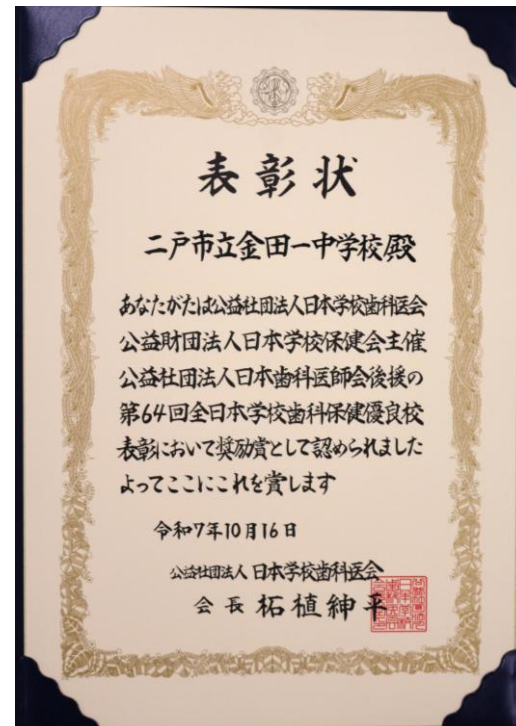 表彰状
二戸市立金田一中学校殿
あなたがたは公益社団法人日本学校歯科医会
公益財団法人日本学校保健会主催
公益社団法人日本歯科医師会後援の
第64回全日本学校歯科保健優良校
表彰において奨励賞として認められました
よってここにこれを賞します
令和7年10月16日
公益社団法人 日本学校歯科医会
会長 柘植紳平